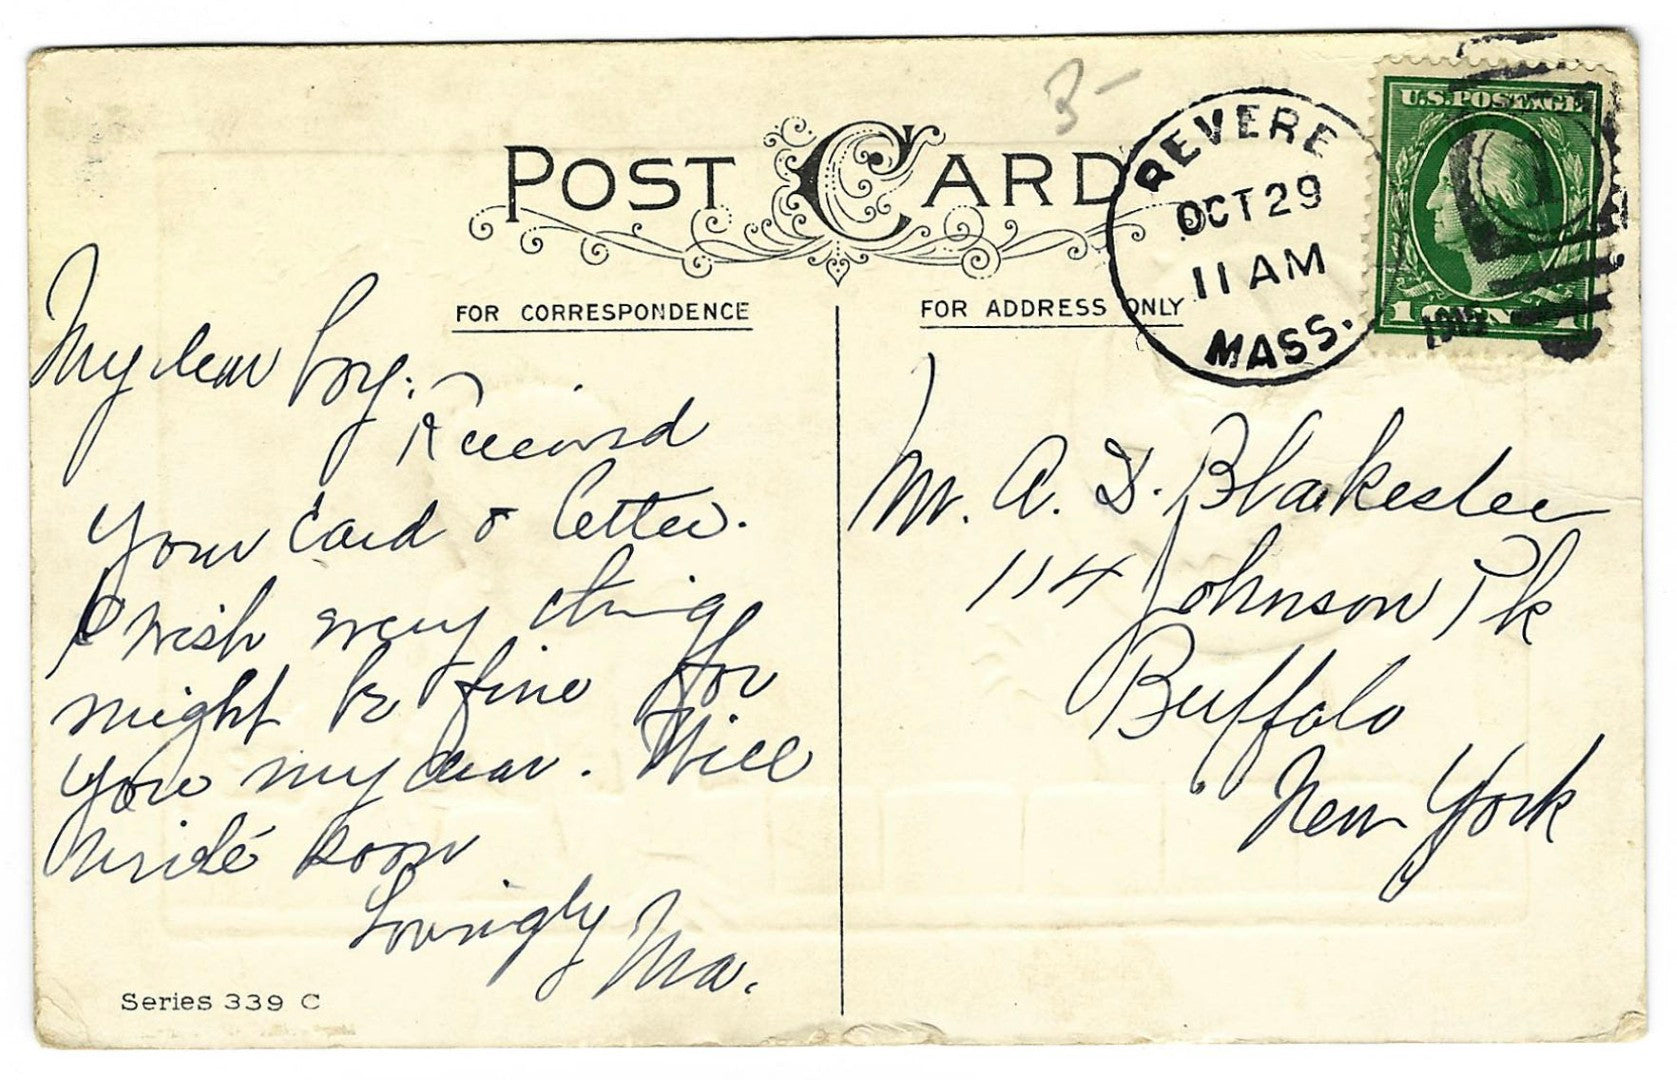 3-
POST CARD
REVERE
OCT 29
11 AM
MASS.
1912
U.S. POSTAGE
1 CENT 1
FOR CORRESPONDENCE
FOR ADDRESS ONLY
My dear boy:
Received
your card & letter.
I wish every thing
might be fine for
you my dear. Will
write soon
Lovingly Ma.
Mr. A. D. Blakeslee
114 Johnson Pk
Buffalo
New York
Series 339 C